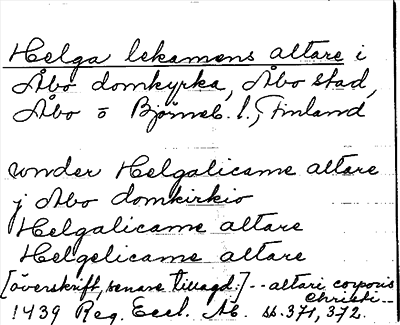 Helga lekamens altare i
Åbo domkyrka, Åbo stad,
Åbo o Björneb. l., Finland
wnder Helgalicame altare
j Abo domkirkio
Helgalicame altare
Helgelicame altare
[överskrift, senare tillagd:] -- altari corporis
Christi --
1439 Reg. Eccl. Ab. ss. 371, 372.